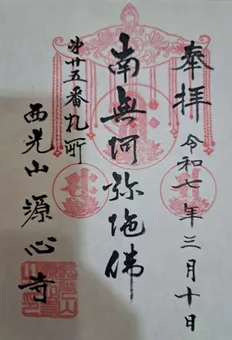 奉拝
令和七年三月十日
南無阿弥陀佛
第廿五番札所
西光山
源心寺